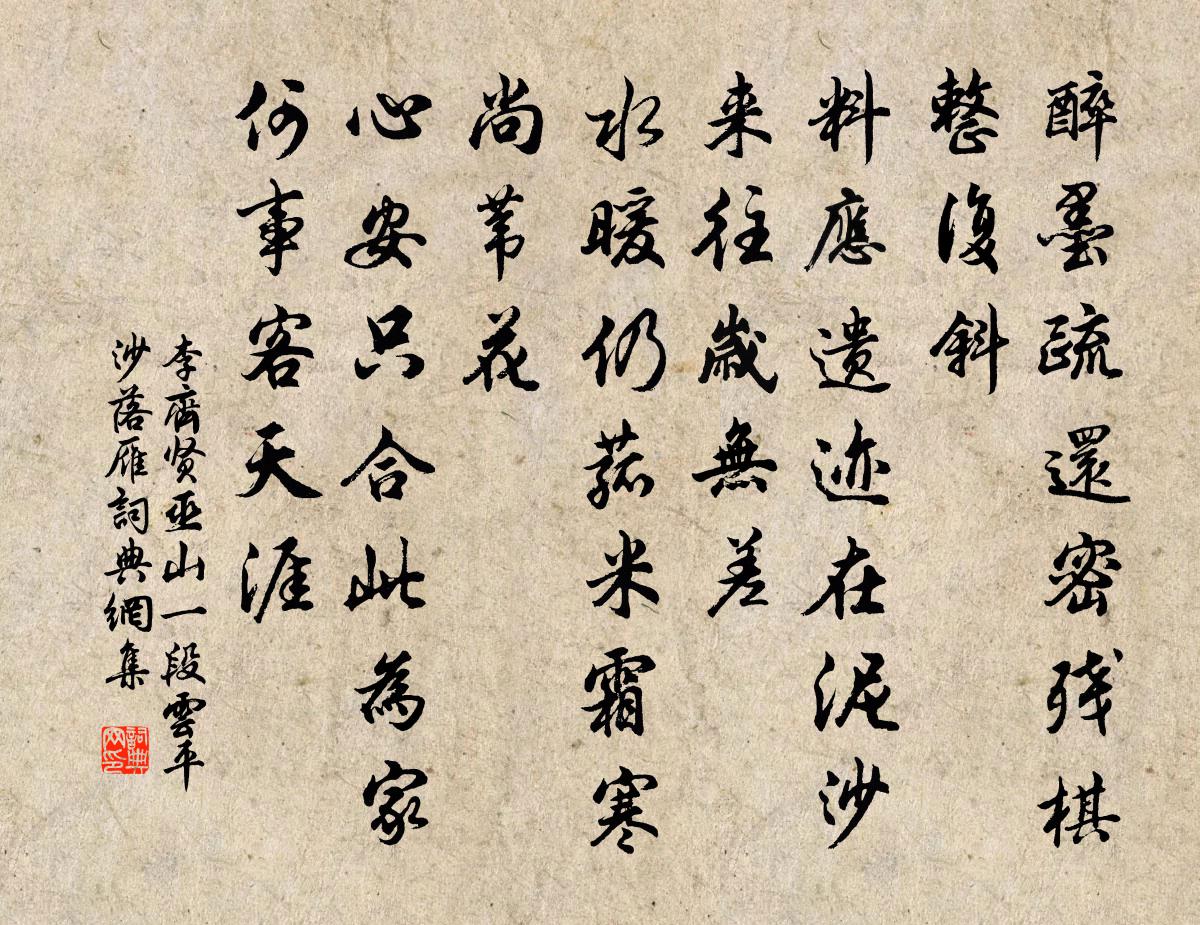 醉墨疏還密殘棋
整復斜
料應遺迹在泥沙
来往歲無差
水暖仍菰米霜寒
尚苇花
心安只合此為家
何事客天涯
李齊贤巫山一段雲平
沙落雁詞典網集
詞典
网印